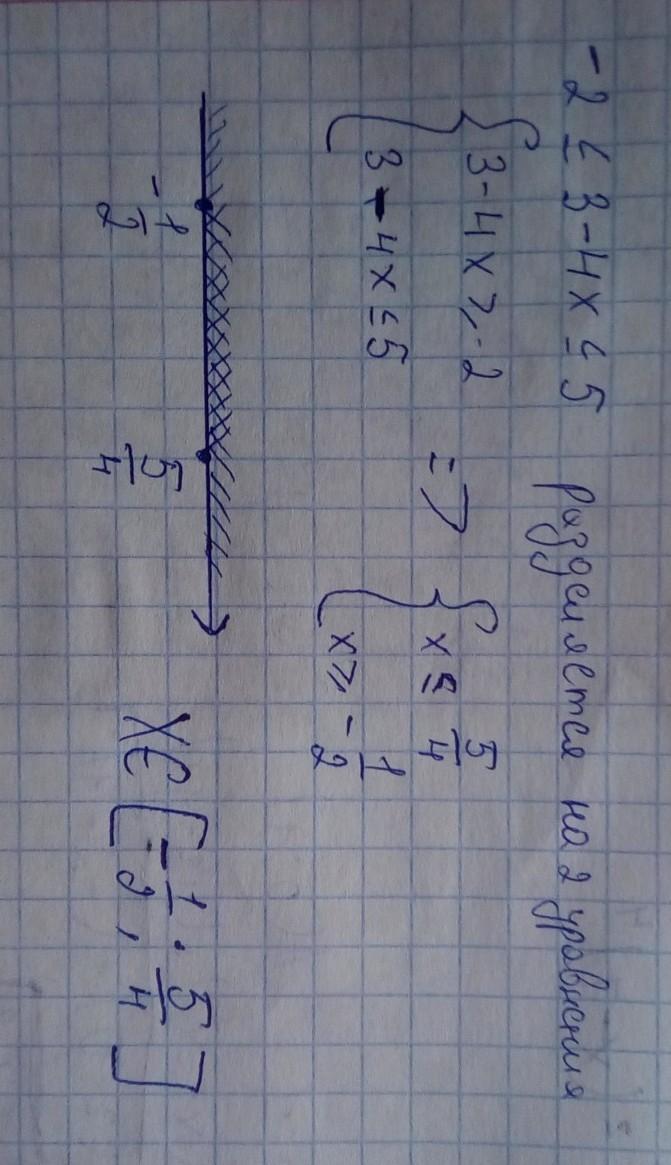 -2 ≤ 3-4x ≤ 5 разделяется на 2 уравнения
{ 3-4x ≥ -2
{ 3-4x ≤ 5
=>
{ x ≤ 5/4
{ x ≥ -1/2
-1/2 5/4
x∈[-1/2; 5/4]